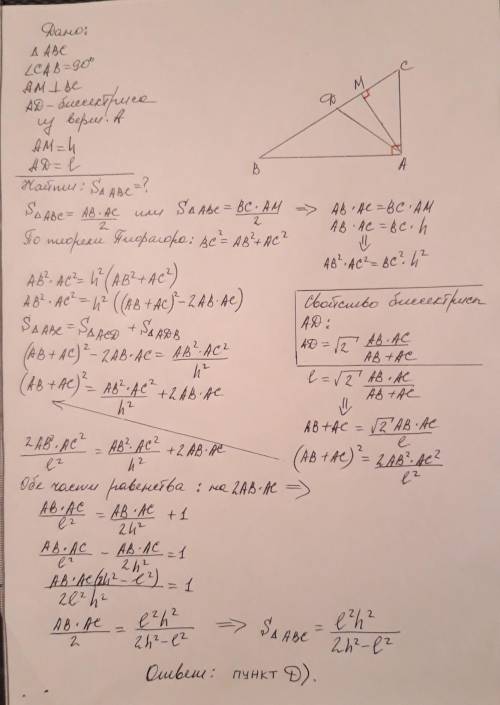 Дано:
Δ ABC
∠CAB=90°
AM⊥BC
AD-биссектриса
из верш. A
AM=h
AD=l
Найти: SΔABC=?
C
M
D
B
A
SΔABC=AB·AC/2 или SΔABC=BC·AM/2 ⇒ AB·AC=BC·AM
AB·AC=BC·h
⇓
AB²·AC²=BC²·h²
По теореме Пифагора: BC²=AB²+AC²
AB²·AC²=h²(AB²+AC²)
AB²·AC²=h²((AB+AC)²-2AB·AC)
SΔABC=SΔACD+SΔADB
(AB+AC)²-2AB·AC=AB²·AC²/h²
(AB+AC)²=AB²·AC²/h²+2AB·AC
Свойство биссектрисы
AD:
AD=√2 AB·AC/AB+AC
l=√2 AB·AC/AB+AC
⇓
AB+AC=√2 AB·AC/l
(AB+AC)²=2AB²·AC²/l²
2AB²·AC²/l²=AB²·AC²/h²+2AB·AC
Обе части равенства : на 2AB·AC ⇒
AB·AC/l²=AB·AC/2h²+1
AB·AC/l²-AB·AC/2h²=1
AB·AC(2h²-l²)/2l²h²=1
AB·AC/2=l²h²/2h²-l² ⇒ SΔABC=l²h²/2h²-l²
Ответ: пункт D).